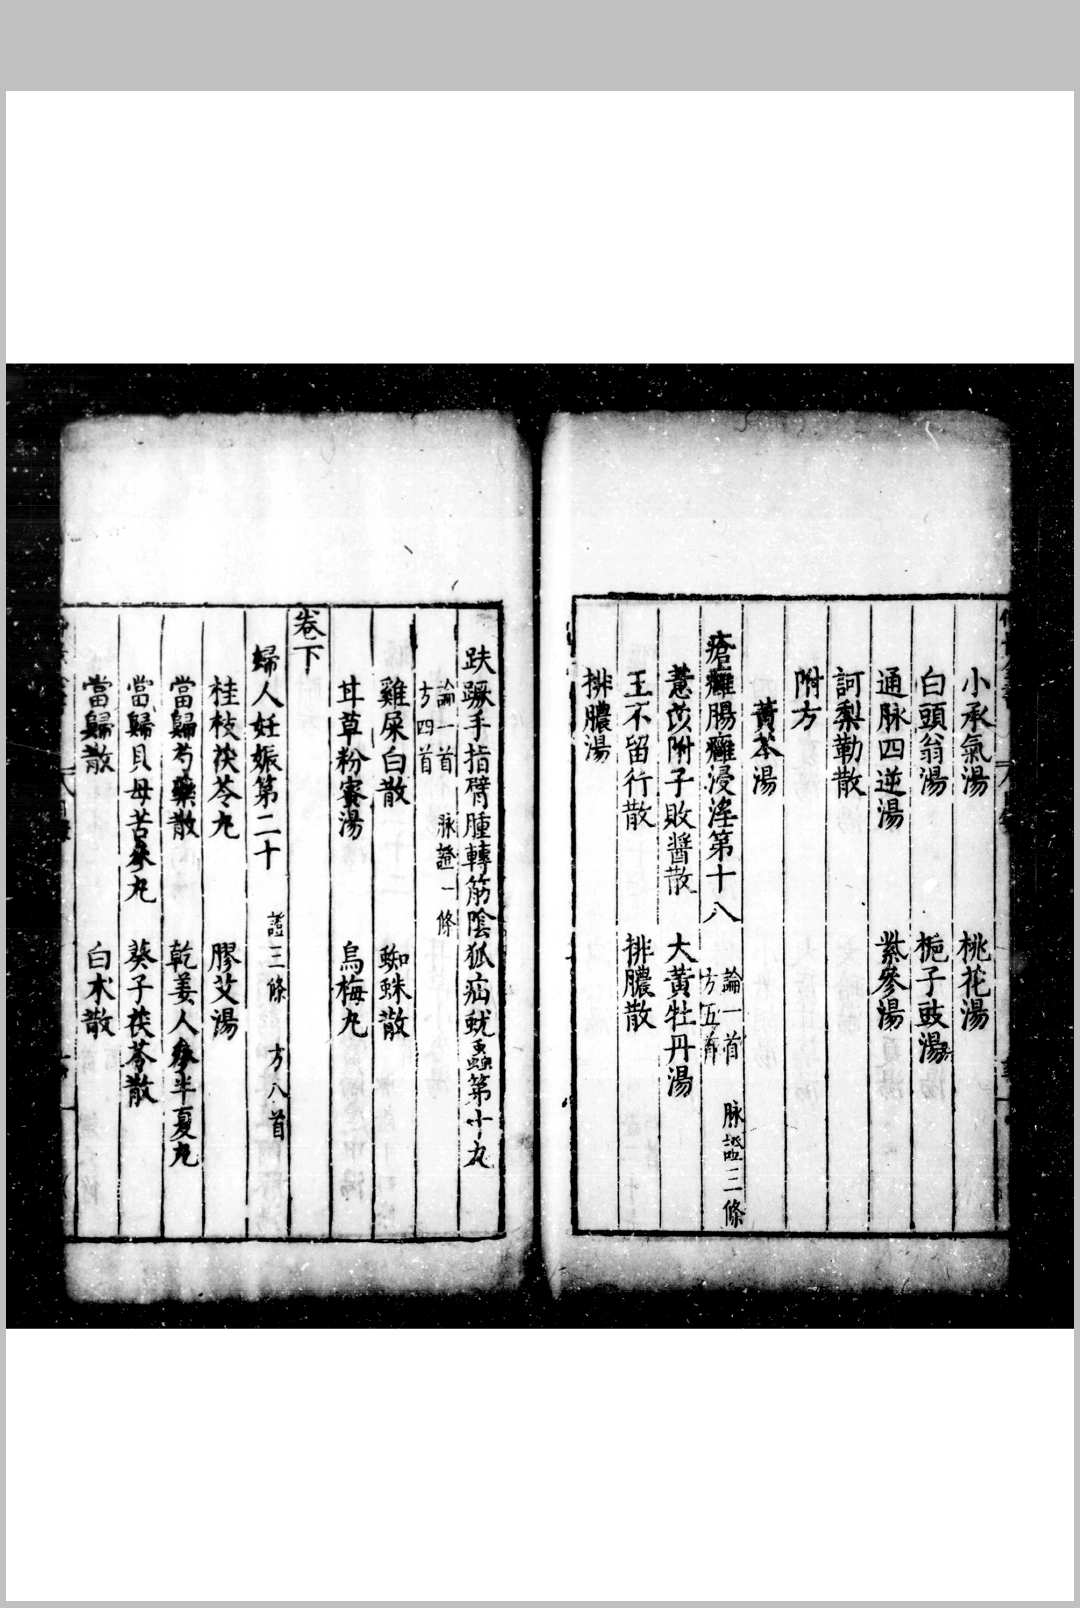 小承氣湯　桃花湯
白頭翁湯　梔子豉湯
通脉四逆湯　紫參湯
訶梨勒散
附方
黃芩湯
瘡癰腸癰浸淫第十八　論一首　脉證三條
方五首
薏苡附子敗醬散　大黃牡丹湯
王不留行散　排膿散
排膿湯
趺蹶手指臂腫轉筋陰狐疝蚘蟲第十九
論一首　脉證一條
方四首
雞屎白散　蜘蛛散
甘草粉蜜湯　烏梅丸
卷下
婦人妊娠第二十　證三條　方八首
桂枝茯苓丸　膠艾湯
當歸芍藥散　乾姜人參半夏丸
當歸貝母苦參丸　葵子茯苓散
當歸散　白朮散